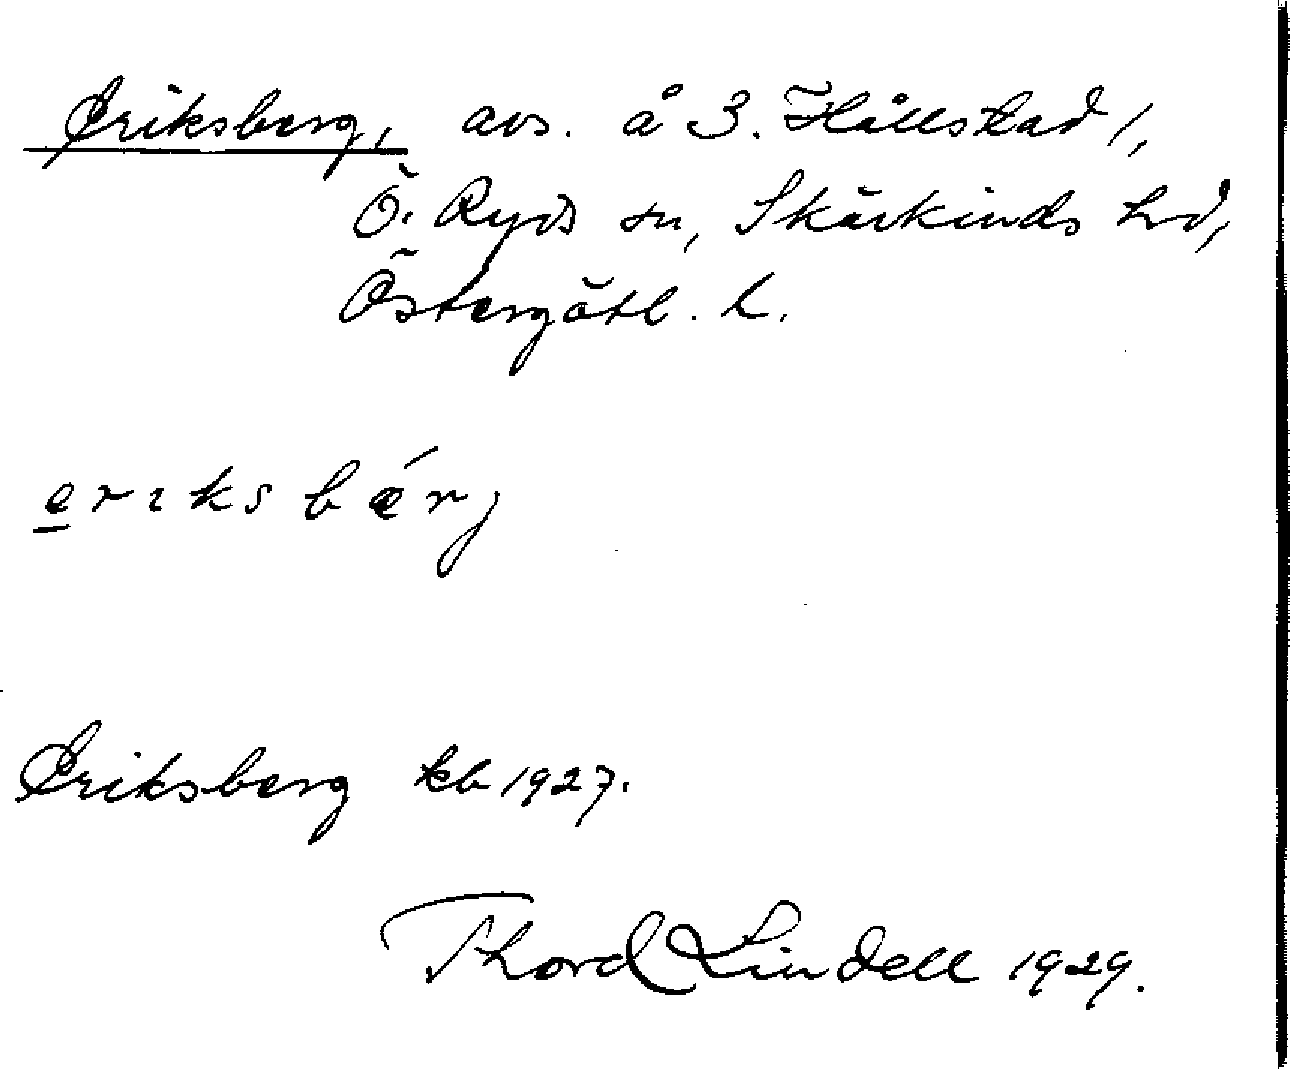 Eriksberg, avs. å 3. Hällstad 1,
Ö. Ryds sn, Skärkinds hd,
Östergötl. l.
eriksbǽrj
Eriksberg kb 1927.
Thord Lindell 1929.